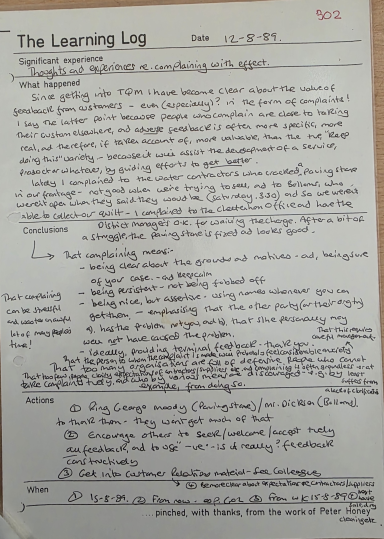 502
The Learning Log Date 12-8-89.
Significant experience
Thoughts and experiences re. complaining with effect.
What happened
Since getting into TQM I have become clear about the value of
feedback from customers - even (especially)? in the form of complaints!
I say the latter point because people who complain are close to taking
their custom elsewhere, and adverse feedback is often more specific, more
real, and therefore, if taken account of, more valuable, than the the "keep
doing this" variety - because it will assist the development of a service,
product or whatever, by guiding efforts to get better.
lately I complained to the water contractors who cracked a paving stone
in our frontage - not good when we're trying to sell, and to Bollom's, who
weren't open when they said they would be (Saturday, 3.30) and so we weren't
able to collect our quilt - I complained to the Head Office and have the
District manager's O.K. for waiving the charge. After a bit of
a struggle, the paving stone is fixed and looks good.
Conclusions
That complaining means:-
- being clear about the grounds and motives - and, being sure
of your case - and keep calm
- being persistent - not being fobbed off
- being nice, but assertive - using names whenever you can
get them, - emphasising that the other party (or their org'n)
has the problem, not you, and that s/he personally may
well not have caused the problem.
- ideally, providing terminal feedback - thank you.
That complaining
can be stressful
and waste an awful
lot of many people's
time!
That this requires
careful management.
That too many organisations are full of defensive people who cannot
take complaints truly, and who by various means are discouraged - e.g. by
example, from doing so.
suffers from
a lack of clarity
Actions
① Ring George Moody (Paving stone) / Mr. Dickson (Bolloms)
to thank them - they won't get much of that
② Encourage others to seek/welcome/accept truly
all feedback, and to use "-ve - is it really?" feedback
constructively
③ Get into Customer Relations material - see Colleague
④ Be more clear about expectations re contractors/suppliers
When
① 15-8-89. ② From now ③ From wk 15-8-89 ④ next
.... pinched, with thanks, from the work of Peter Honey